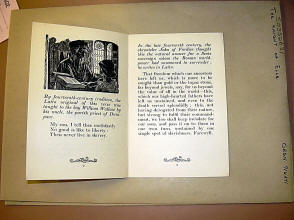 By fourteenth-century tradition, the
Latin original of this verse was
taught to the boy William Wallace by
his uncle, the parish priest of Duni-
pace.
My son, I tell thee soothfastly
No good is like to liberty:
Then never live in slavery.
In the late fourteenth century, the
chronicler John of Fordun thought
this the natural answer for a Scots
sovereign when the Roman world-
power had summoned to surrender:
he writes in Latin.
That freedom which our ancestors
have left us, which is more to be
sought than gold or the topaz stone,
far beyond jewels, aye, far on beyond
the value of all in the world—this,
which our high-hearted fathers have
left us untainted, and even to the
death saved splendidly: this, not
having departed from their nature,
but strong to fulfil their command-
ment, we too shall keep inviolate for
our sons, and pass it on to them in
our own turn, untainted by one
single spot of slavishness. Farewell.